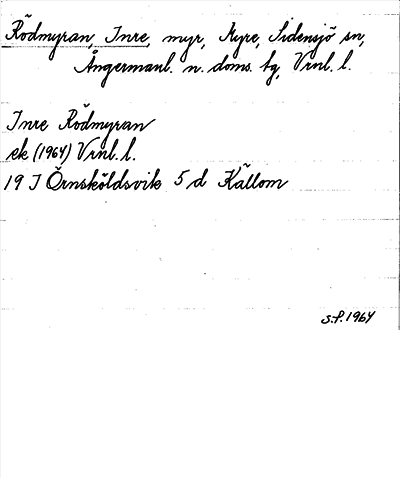 Rödmyran, Inre, myr, Kyre, Sidensjö sn,
Ångermanl. n. doms. tg, Vrnl. l.
Inre Rödmyran
ek (1964) Vrnl. l.
19 J Örnsköldsvik 5 d Källom
S.P. 1964